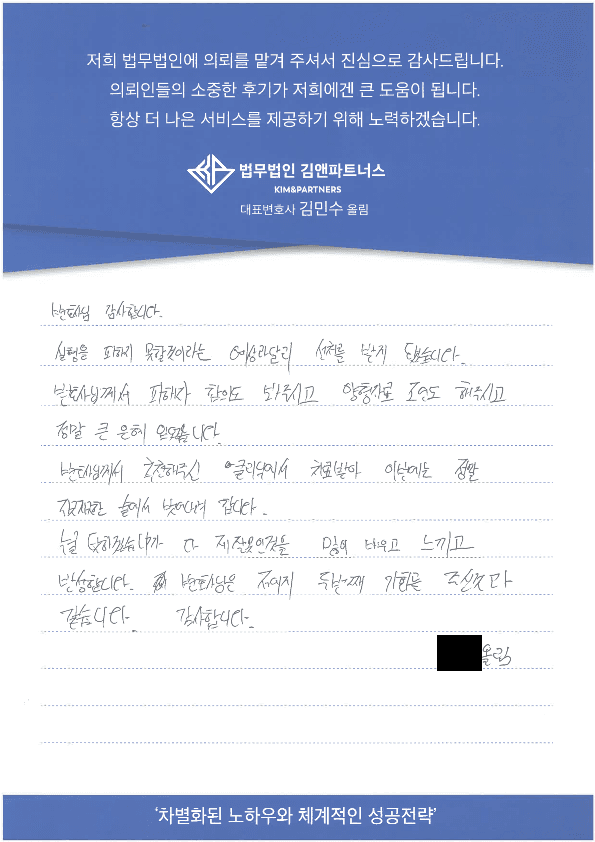 저희 법무법인에 의뢰를 맡겨 주셔서 진심으로 감사드립니다.
의뢰인들의 소중한 후기가 저희에겐 큰 도움이 됩니다.
항상 더 나은 서비스를 제공하기 위해 노력하겠습니다.
법무법인 김앤파트너스
KIM&PARTNERS
대표변호사 김민수 올림
변호사님 감사합니다.
실형을 피하지 못할것이라는 예상과달리 선처를 받게 되었습니다.
변호사님께서 피해자 합의도 봐주시고 양형자료 조언도 해주시고
정말 큰 은혜 입었습니다.
변호사님께서 추천해주신 클리닉에서 치료받아 이번에는 정말
지긋지긋한 술에서 벗어나려 합니다.
누굴 탓하겠습니까 다 제 잘못인것을 많이 배우고 느끼고
반성합니다. 변호사님은 저에게 두번째 기회를 주신것과
같습니다. 감사합니다.
올림
'차별화된 노하우와 체계적인 성공전략'